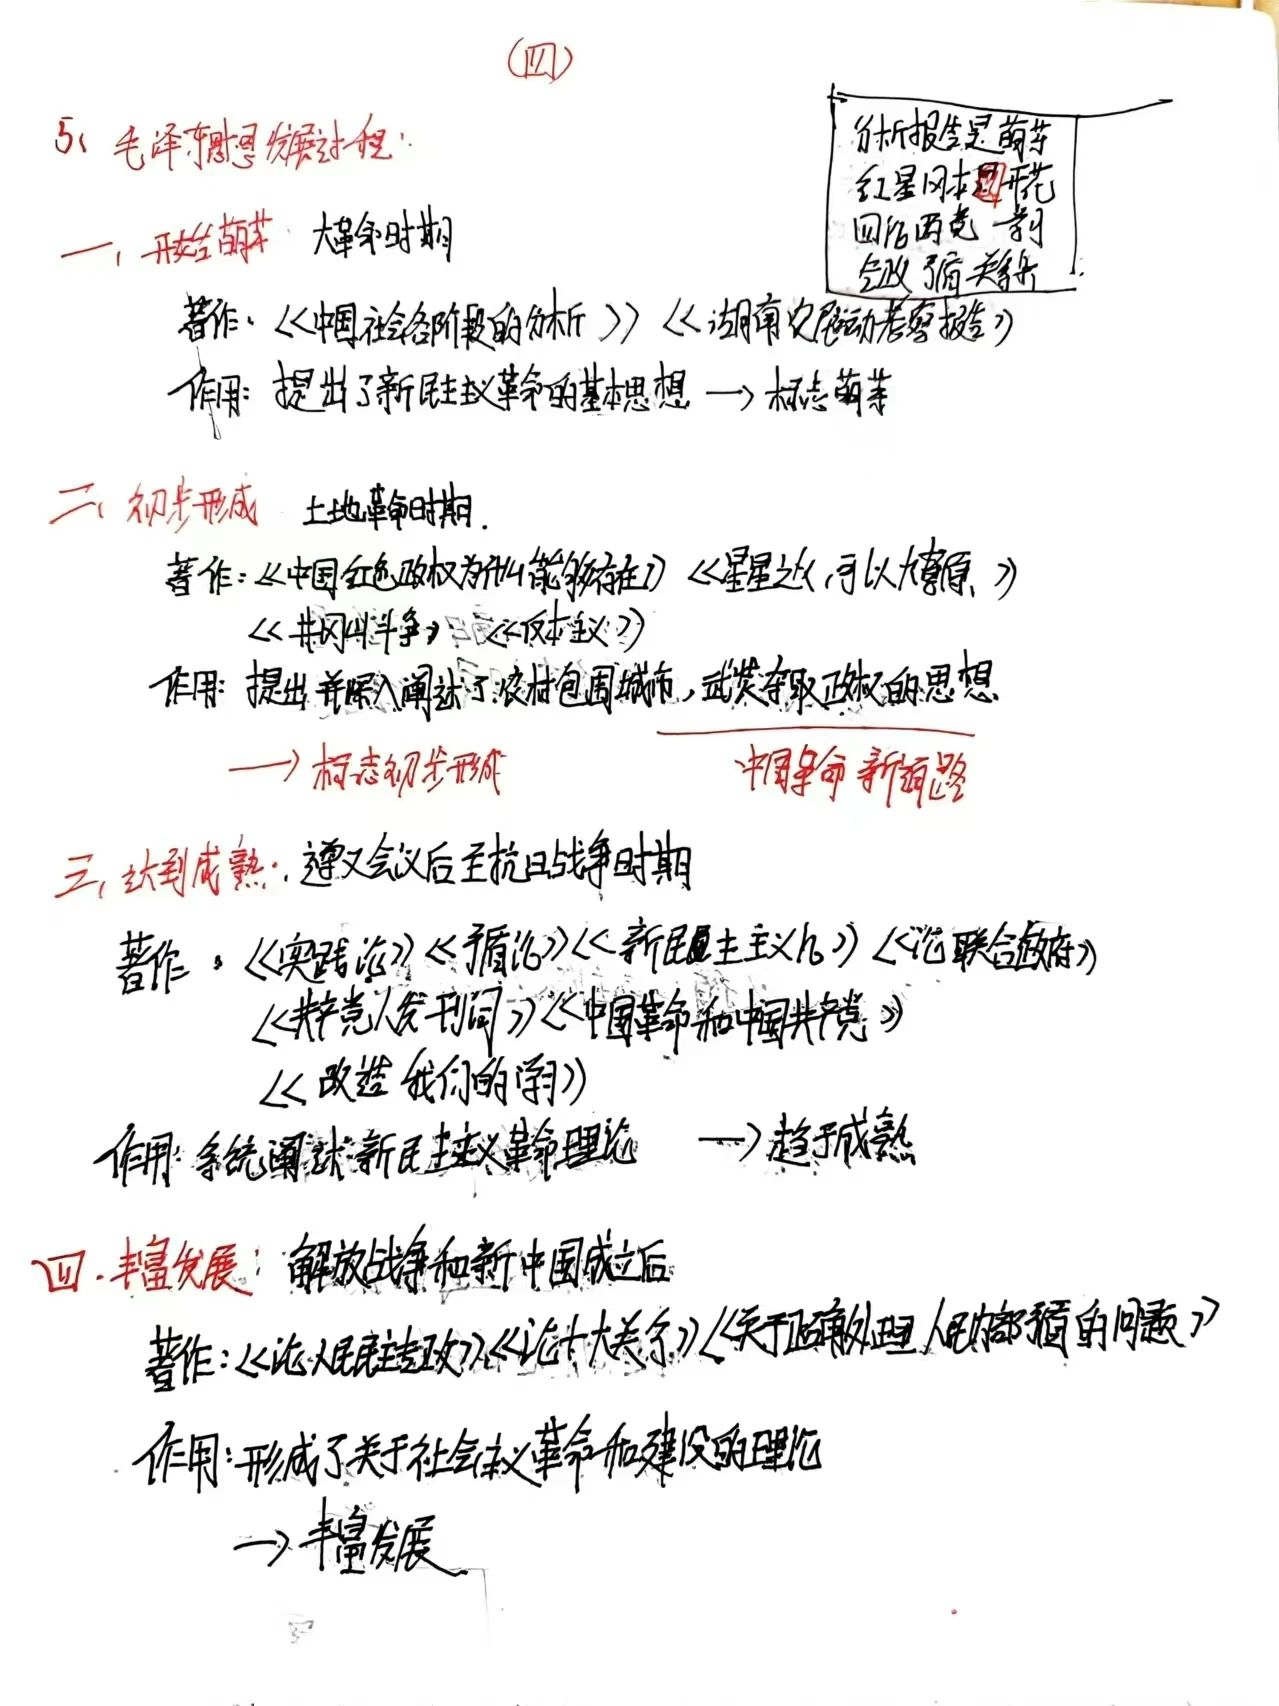 (四)
5、毛泽东思想发展过程:
分析报告是萌芽
红星冈本四开花
四论两党一学习
会政矛盾关系
一、开始萌芽 大革命时期
著作:《中国社会各阶段的分析》《湖南农民运动考察报告》
作用:提出了新民主义革命的基本思想→标志萌芽
二、初步形成 土地革命时期.
著作:《中国红色政权为什么能够存在》《星星之火,可以大燎原、》
《井冈山斗争》《反本主义》
作用:提出并深入阐述了农村包围城市,武装夺取政权的思想
→标志初步形成 中国革命新道路
三、达到成熟:遵义会议后至抗日战争时期
著作:《实践论》《矛盾论》《新民主主义论》《论联合政府》
《共产党人发刊词》《中国革命和中国共产党》
《改造我们的学习》
作用:系统阐述新民主主义革命理论 →趋于成熟
四.丰富发展:解放战争和新中国成立后
著作:《论人民民主专政》《论十大关系》《关于正确处理人民内部矛盾的问题》
作用:形成了关于社会主义革命和建设的理论
→丰富发展